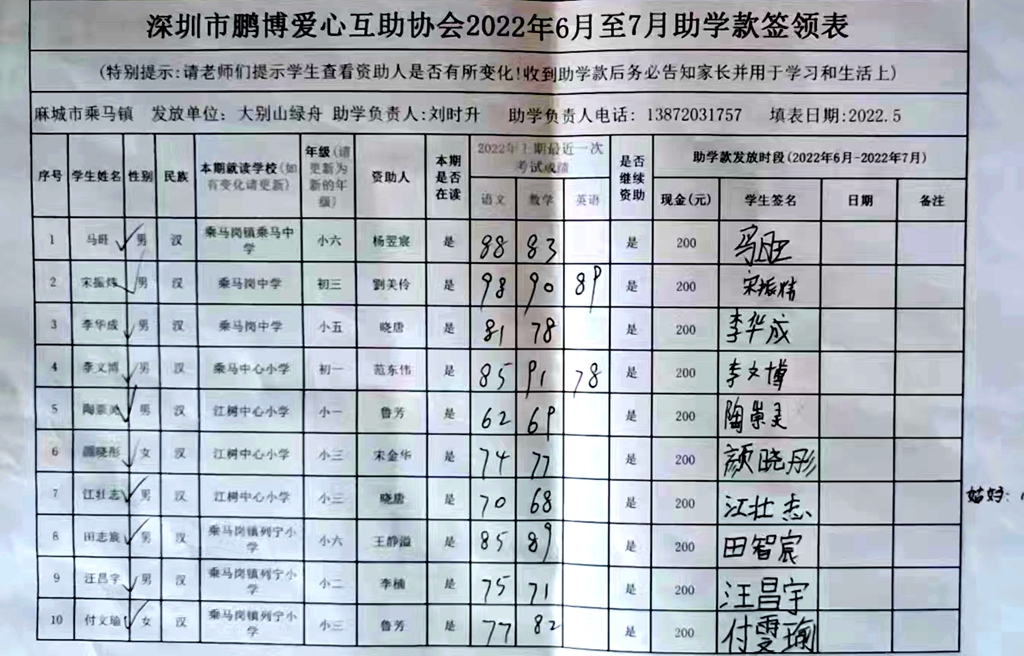 深圳市鹏博爱心互助协会2022年6月至7月助学款签领表
(特别提示:请老师们提示学生查看资助人是否有所变化!收到助学款后务必告知家长并用于学习和生活上)
麻城市乘马镇 发放单位: 大别山绿舟 助学负责人:刘时升 助学负责人电话: 13872031757 填表日期:2022.5
序号 学生姓名 性别 民族 本期就读学校(如有变化请更新) 年级(请更新为新的年级) 资助人 本期是否在读 2022年上期最近一次考试成绩 是否继续资助 助学款发放时段(2022年6月-2022年7月)
语文 数学 英语 现金(元) 学生签名 日期 备注
1 马旺 男 汉 乘马岗镇乘马中学 小六 杨翌宸 是 88 83 是 200 马旺
2 宋振炜 男 汉 乘马岗中学 初三 劉美伶 是 98 90 89 是 200 宋振炜
3 李华成 男 汉 乘马岗中学 小五 晓唐 是 81 78 是 200 李华成
4 李文博 男 汉 乘马中心小学 初一 范东伟 是 85 91 78 是 200 李文博
5 陶崇灵 男 汉 江树中心小学 小一 鲁芳 是 62 69 是 200 陶崇灵
6 颜晓彤 女 汉 江树中心小学 小三 宋金华 是 74 77 是 200 颜晓彤
7 江壮志 男 汉 江树中心小学 小三 晓唐 是 70 68 是 200 江壮志
8 田志宸 男 汉 乘马岗镇列宁小学 小六 王静溢 是 85 89 是 200 田智宸
9 汪昌宇 男 汉 乘马岗镇列宁小学 小二 李楠 是 75 71 是 200 汪昌宇
10 付文瑜 女 汉 乘马岗镇列宁小学 小三 鲁芳 是 77 82 是 200 付雯瑜